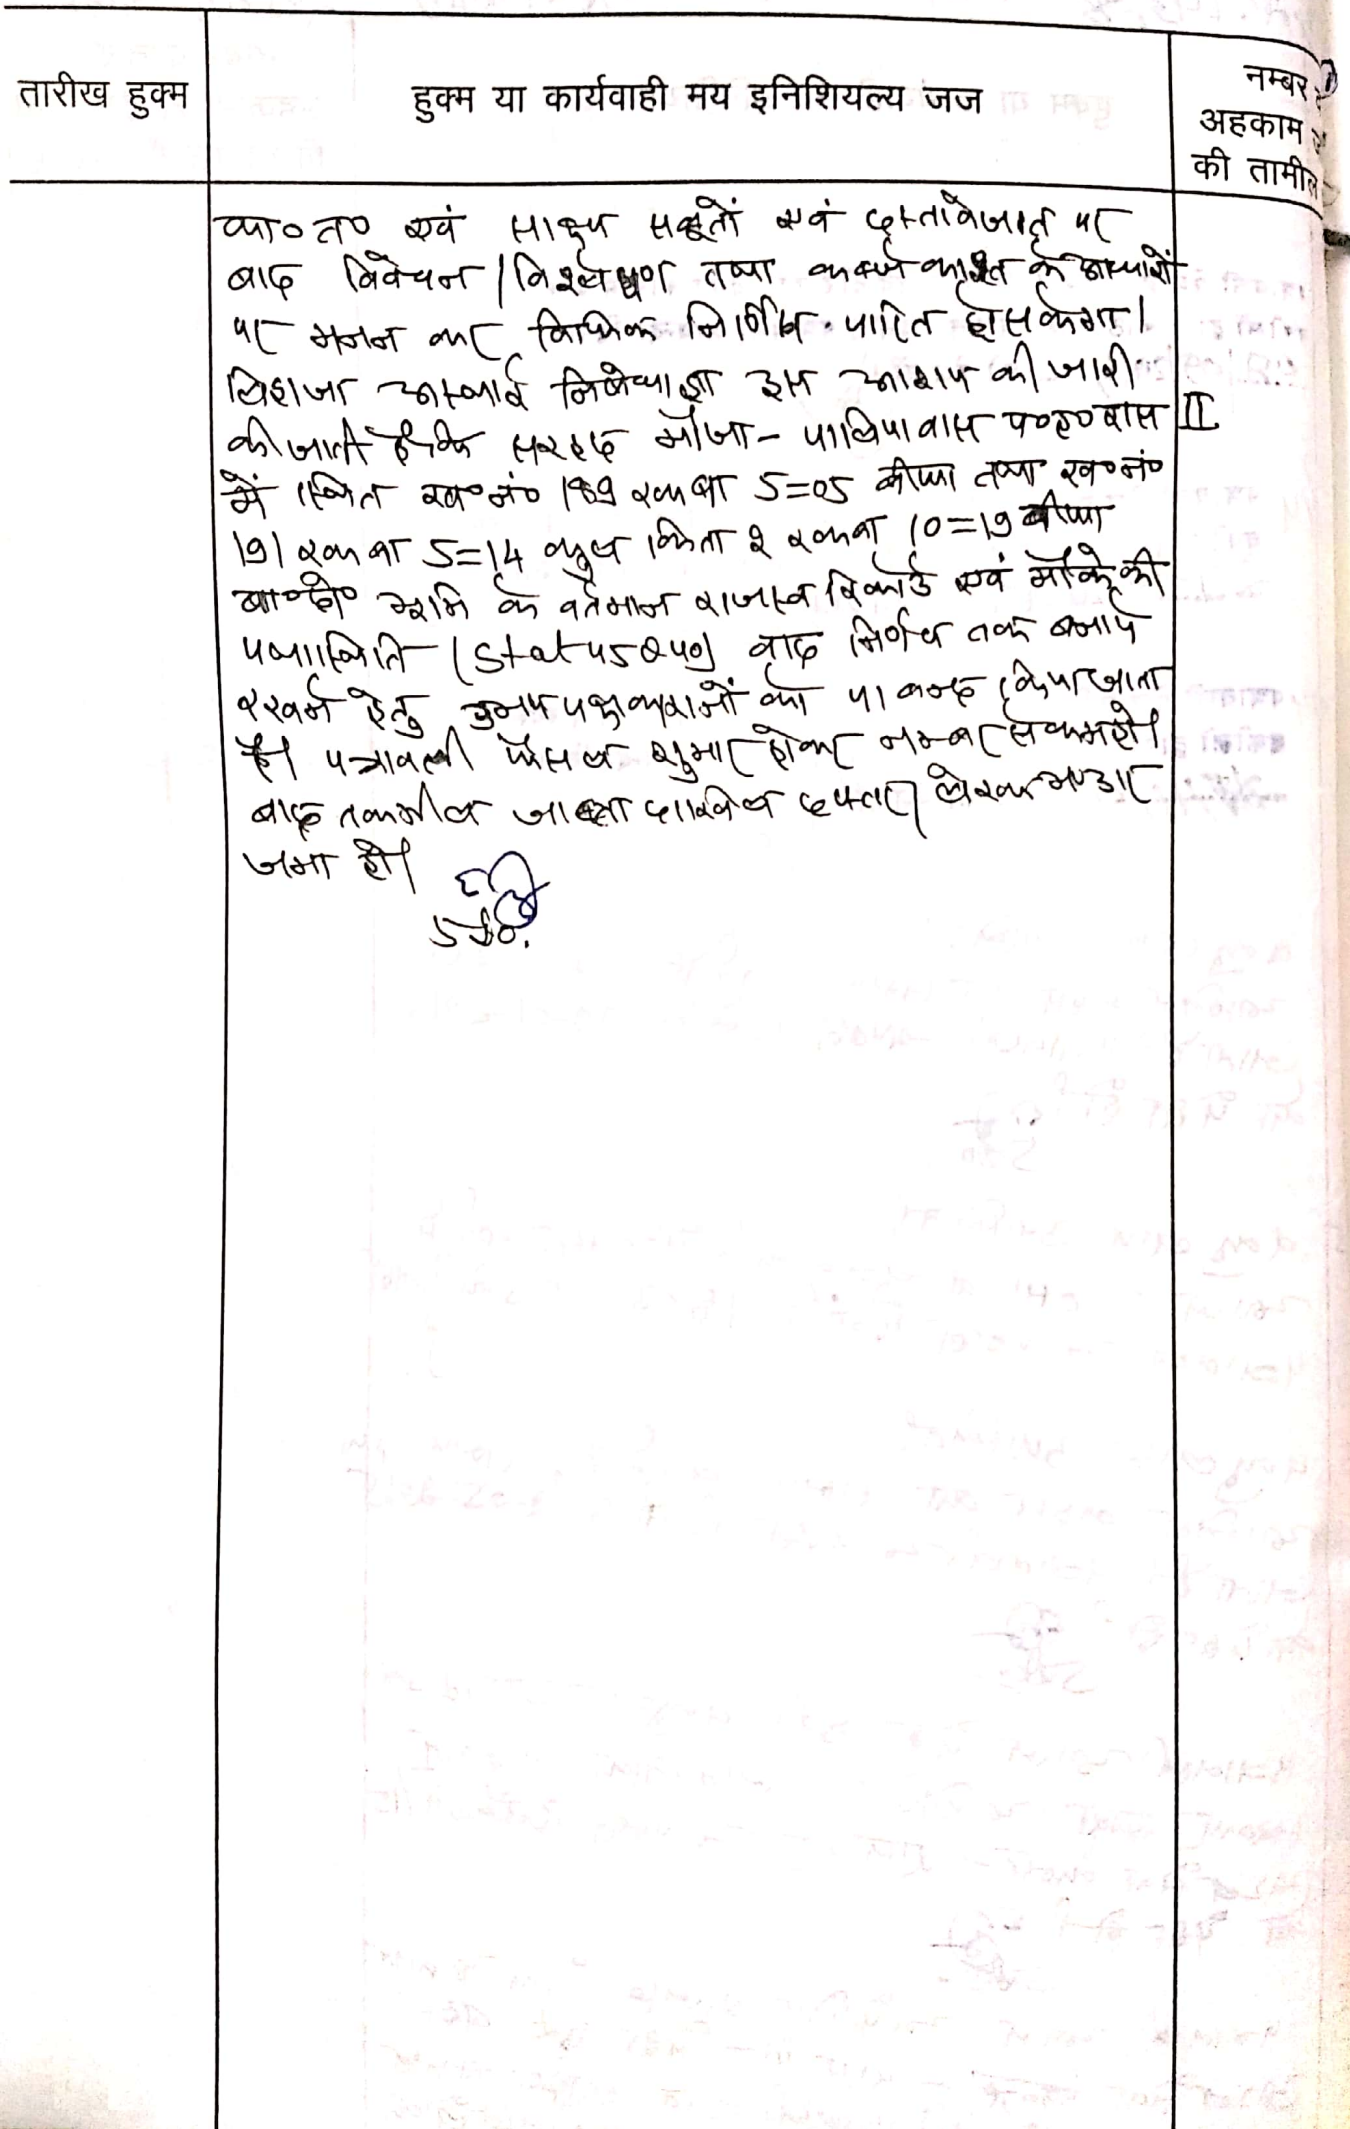 तारीख हुक्म
हुक्म या कार्यवाही मय इनिशियल्य जज
नम्बर
अहकाम
की तामील
का० त० एवं साक्ष्य सबूतों एवं दस्तावेजात पर
बाद विवेचन / विश्लेषण तथा कब्जे काश्त के आधारों
पर मनन कर विधिक निर्णय पारित हो सकेगा।
लिहाजा अस्थाई निषेधाज्ञा इस आशय की जारी
की जाती है कि सरहद मौजा - पालियावास प०ह० बास II
में स्थित ख०नं० 189 रकबा 5=05 बीघा तथा ख०नं०
191 रकबा 5=14 कुल किता 2 रकबा 10=19 बीघा
भूमि के वर्तमान राजस्व रिकॉर्ड एवं मौके की
यथास्थिति (Status Quo) वाद निर्णय तक बनाये
रखने हेतु उभय पक्षकारानों को पाबन्द किया जाता
है। पत्रावली फैसल शुमार होकर नम्बर से कम हो।
बाद तकमील जाब्ता दाखिल दफ्तर लेख भण्डार
जमा हो।
SDO.